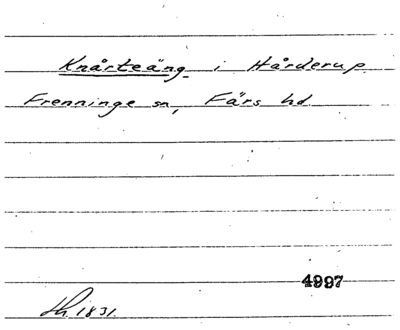 Knårteäng i Hårderup
Frenninge sn, Färs hd
4997
Lh 1831.